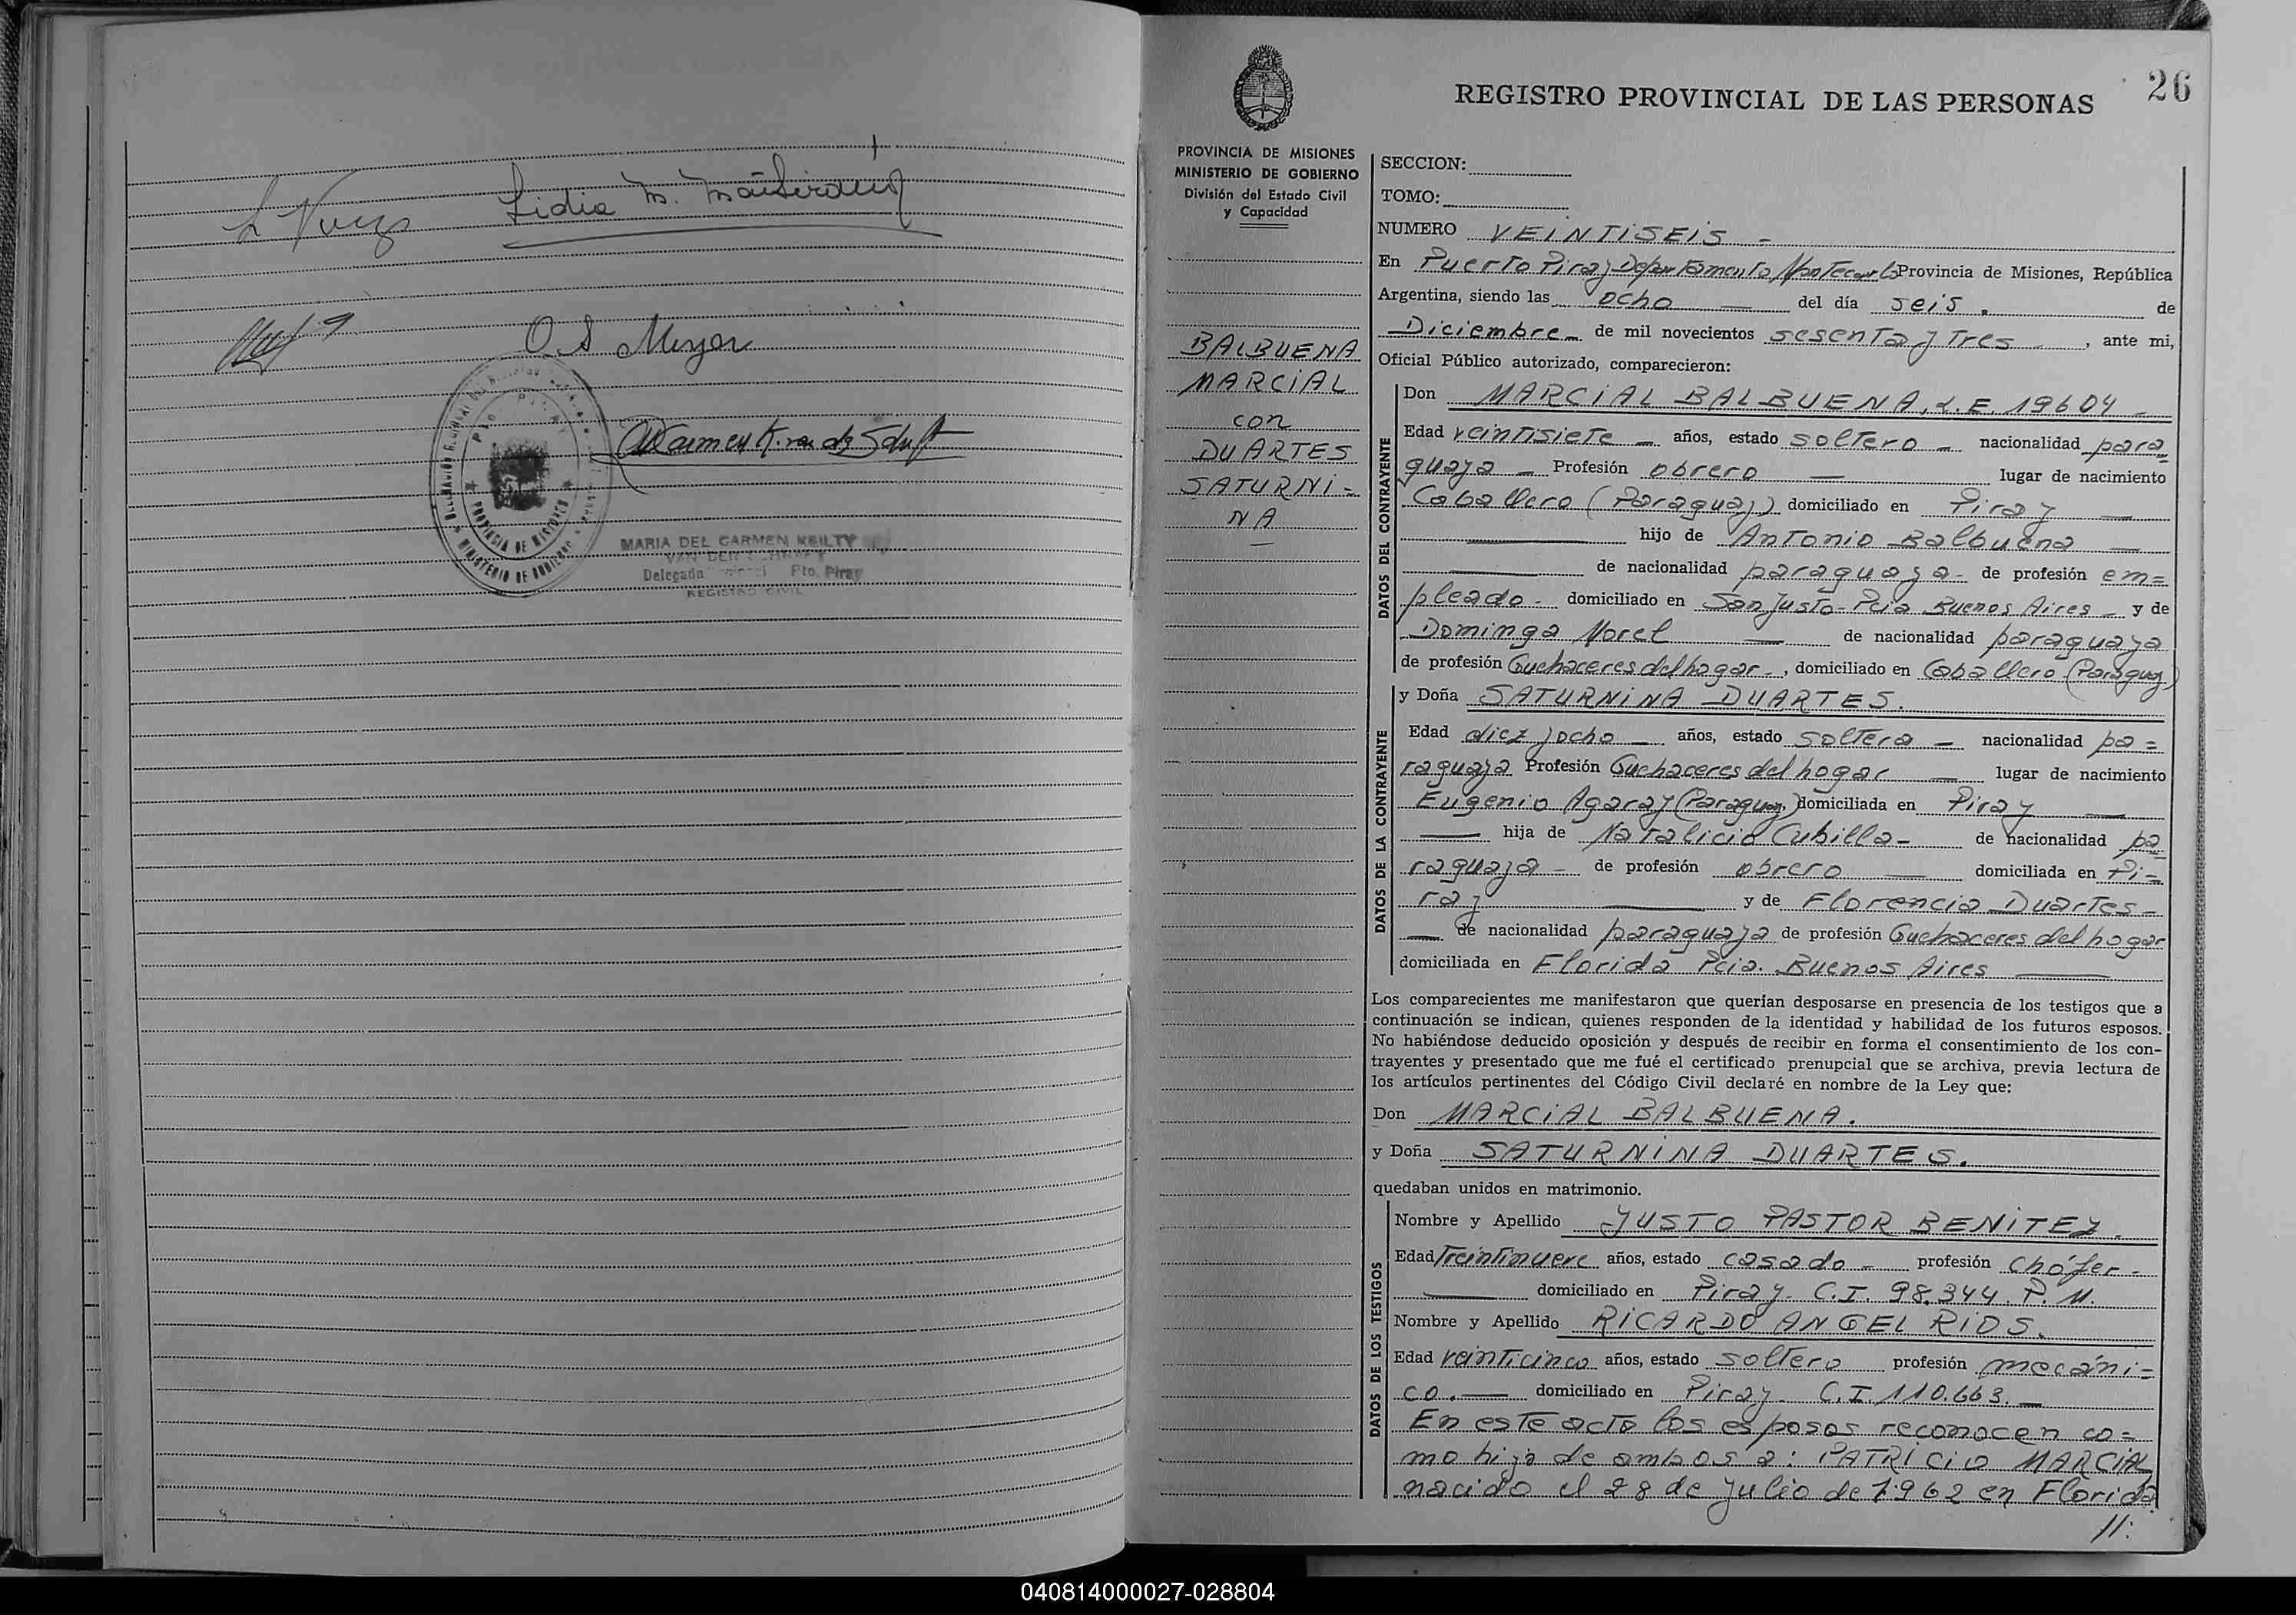 L Nuez Lidia M.
O. A Meyer
PROVINCIA DE MISIONES
MINISTERIO DE GOBIERNO
MARIA DEL CARMEN KEILTY
VAN DER
Delegada Pto. Piray
REGISTRO CIVIL
26
REGISTRO PROVINCIAL DE LAS PERSONAS
PROVINCIA DE MISIONES
MINISTERIO DE GOBIERNO
División del Estado Civil
y Capacidad
BALBUENA
MARCIAL
con
DUARTES
SATURNI=
NA
SECCION:
TOMO:
NUMERO VEINTISEIS -
En Puerto Piray Departamento Montecarlo Provincia de Misiones, República
Argentina, siendo las ocho — del día seis. de
Diciembre - de mil novecientos sesenta y tres - , ante mi,
Oficial Público autorizado, comparecieron:
DATOS DEL CONTRAYENTE
Don MARCIAL BALBUENA, L.E. 19604 -
Edad veintisiete - años, estado soltero - nacionalidad para
guaya - Profesión obrero — lugar de nacimiento
Caballero (Paraguay) domiciliado en Piray —
— hijo de Antonio Balbuena —
— de nacionalidad paraguaya - de profesión em=
pleado - domiciliado en San Justo - Pcia Buenos Aires - y de
Dominga Morel — de nacionalidad paraguaya
de profesión Quehaceres del hogar - , domiciliado en Caballero (Paraguay)
DATOS DE LA CONTRAYENTE
y Doña SATURNINA DUARTES.
Edad diez y ocho — años, estado soltera - nacionalidad pa=
raguaya Profesión Quehaceres del hogar — lugar de nacimiento
Eugenio Agaray (Paraguay) domiciliada en Piray —
— hija de Natalicio Cubilla - de nacionalidad pa
raguaya - de profesión obrero — domiciliada en Pi=
ray — y de Florencia Duartes -
— de nacionalidad paraguaya de profesión Quehaceres del hogar
domiciliada en Florida Pcia. Buenos Aires —
Los comparecientes me manifestaron que querían desposarse en presencia de los testigos que a
continuación se indican, quienes responden de la identidad y habilidad de los futuros esposos.
No habiéndose deducido oposición y después de recibir en forma el consentimiento de los con-
trayentes y presentado que me fué el certificado prenupcial que se archiva, previa lectura de
los artículos pertinentes del Código Civil declaré en nombre de la Ley que:
Don MARCIAL BALBUENA.
y Doña SATURNINA DUARTES.
quedaban unidos en matrimonio.
DATOS DE LOS TESTIGOS
Nombre y Apellido JUSTO PASTOR BENITEZ.
Edad Treintinueve años, estado casado - profesión chófer -
— domiciliado en Piray C.I. 98.344. P. M.
Nombre y Apellido RICARDO ANGEL RIOS.
Edad veinticinco años, estado soltero profesión mecáni=
co. — domiciliado en Piray C.I. 110.663. —
En este acto los esposos reconocen co=
mo hijo de ambos a: PATRICIO MARCIAL
nacido el 28 de Julio de 1962 en Florida
//:
040814000027-028804